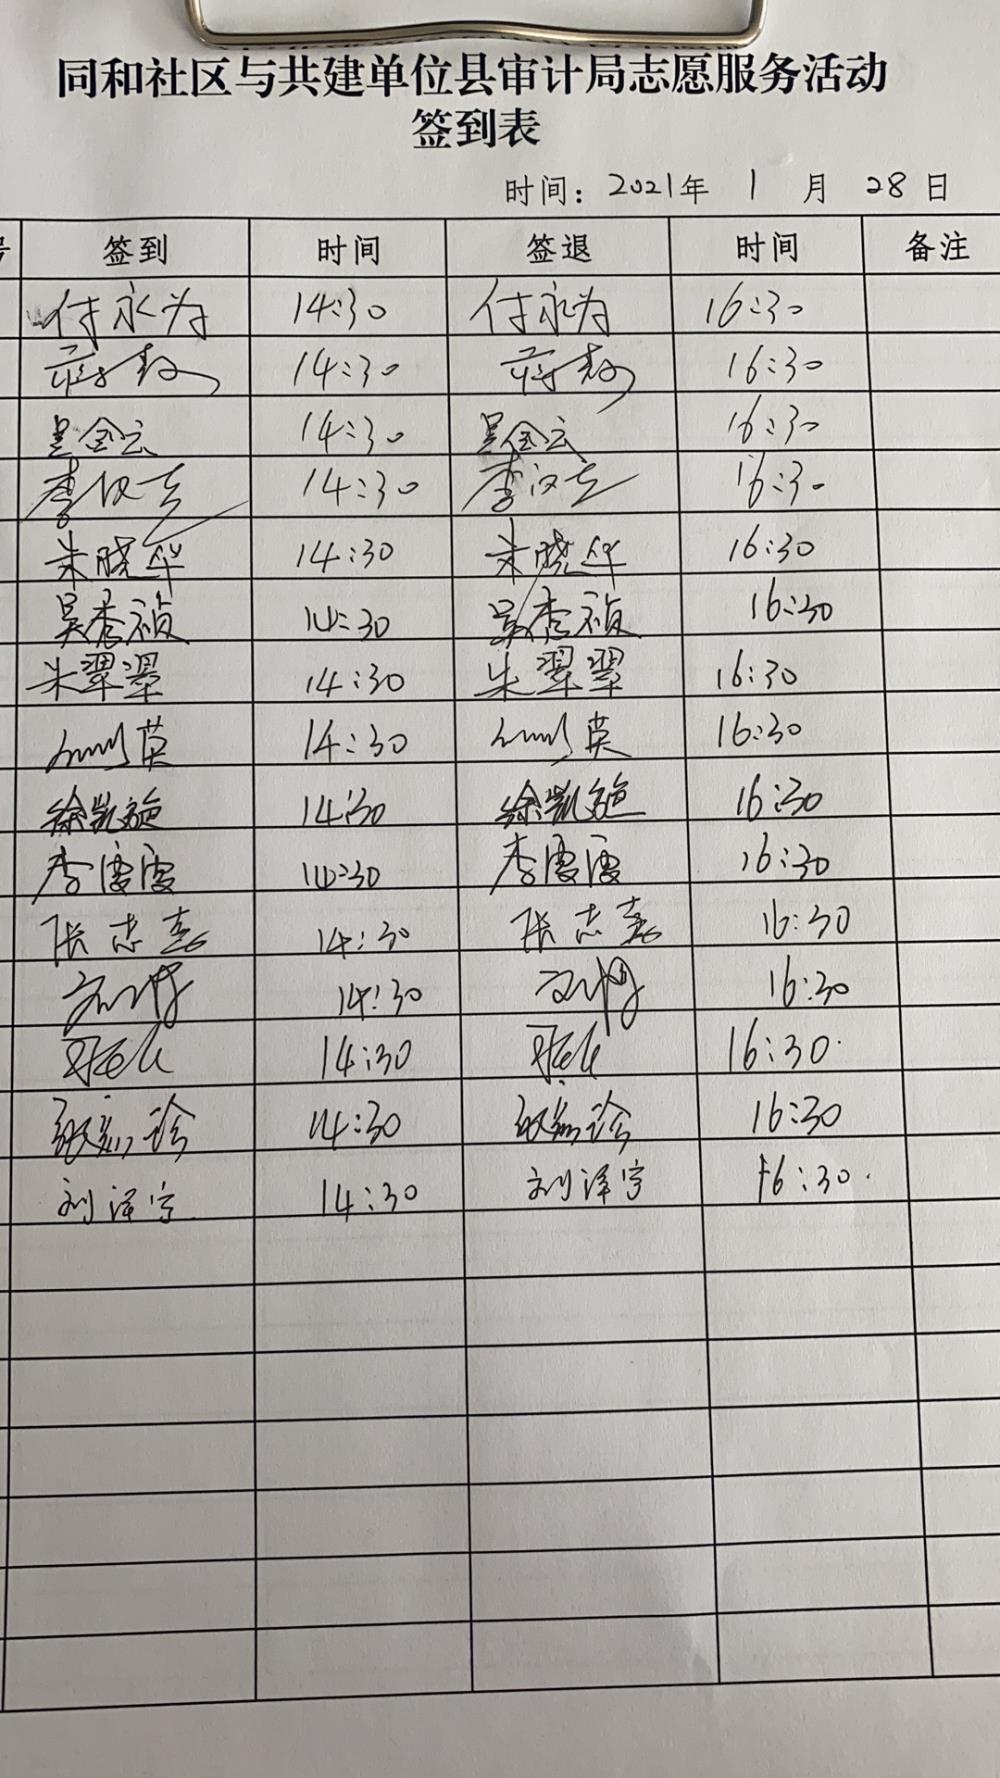 同和社区与共建单位县审计局志愿服务活动
签到表
时间：2021年 1 月 28 日
签到 时间 签退 时间 备注
付永为 14:30 付永为 16:30
14:30 16:30
吴金云 14:30 吴金云 16:30
李汉 14:30 李汉 16:30
朱晓华 14:30 朱晓华 16:30
吴秀祯 14:30 吴秀祯 16:30
朱翠翠 14:30 朱翠翠 16:30
英 14:30 英 16:30
徐凯旋 14:30 徐凯旋 16:30
李霞霞 14:30 李霞霞 16:30
张志嘉 14:30 张志嘉 16:30
14:30 16:30
14:30 16:30
珍 14:30 16:30
刘泽宇 14:30 刘泽宇 16:30